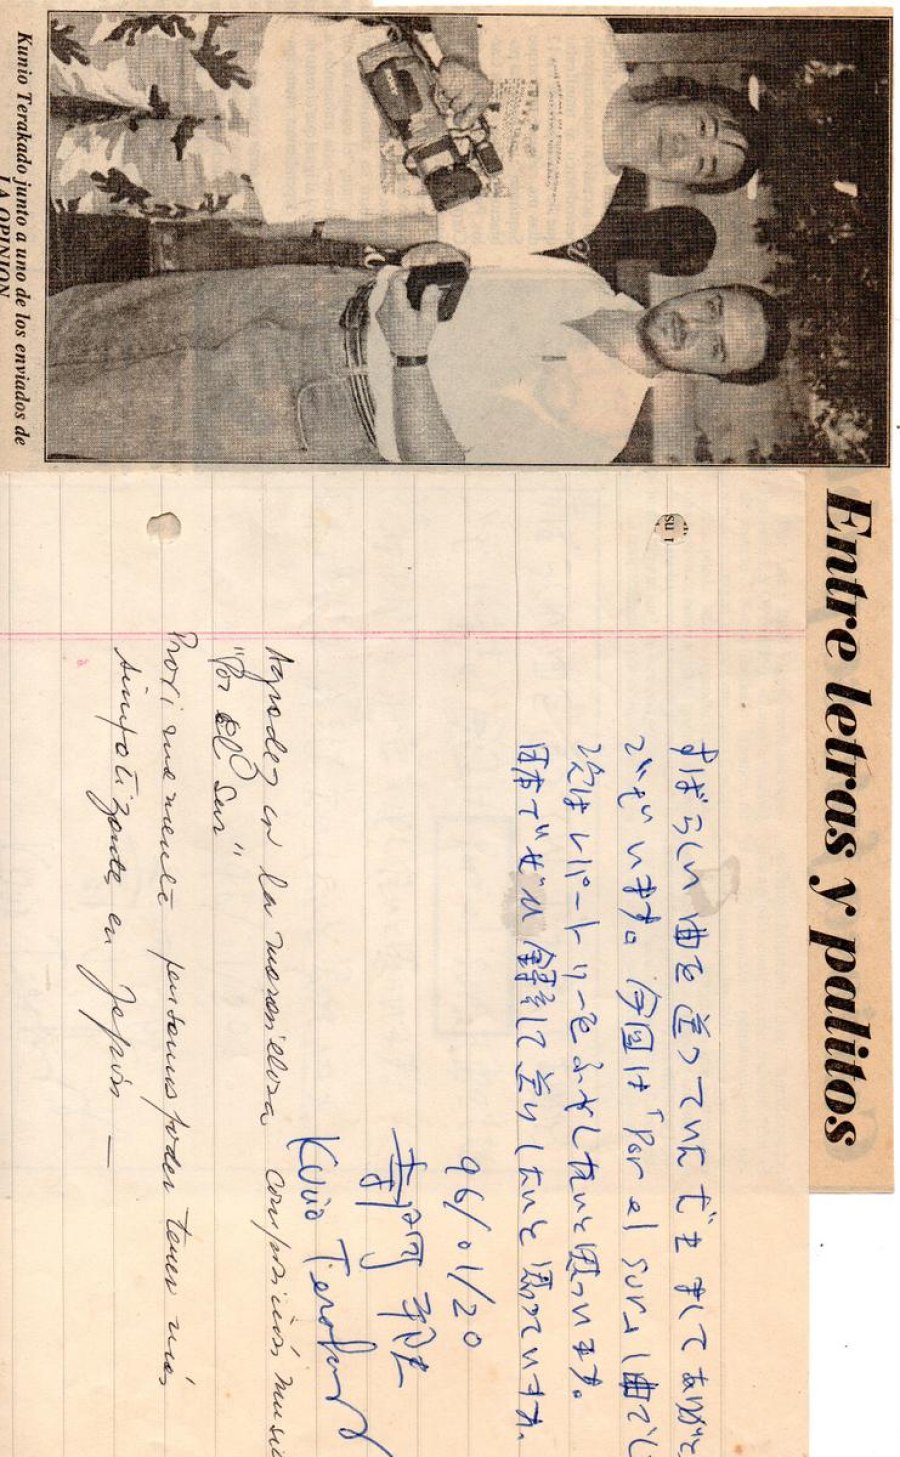 Entre letras y palitos
Kunio Terakado junto a uno de los enviados de
LA OPINION
su
すばらしい曲を送っていただきましてありがと
ございます。今回は「Por el sur」1曲でし
次はレパートリーをふやしたいと思います。
日本でぜひ録音して送りしたいと思っています。
96/01/20
Kunio
la maravillosa composición music
"Por el Sur"
Proximamente pensamos poder tener más
simpatizantes en Japón —